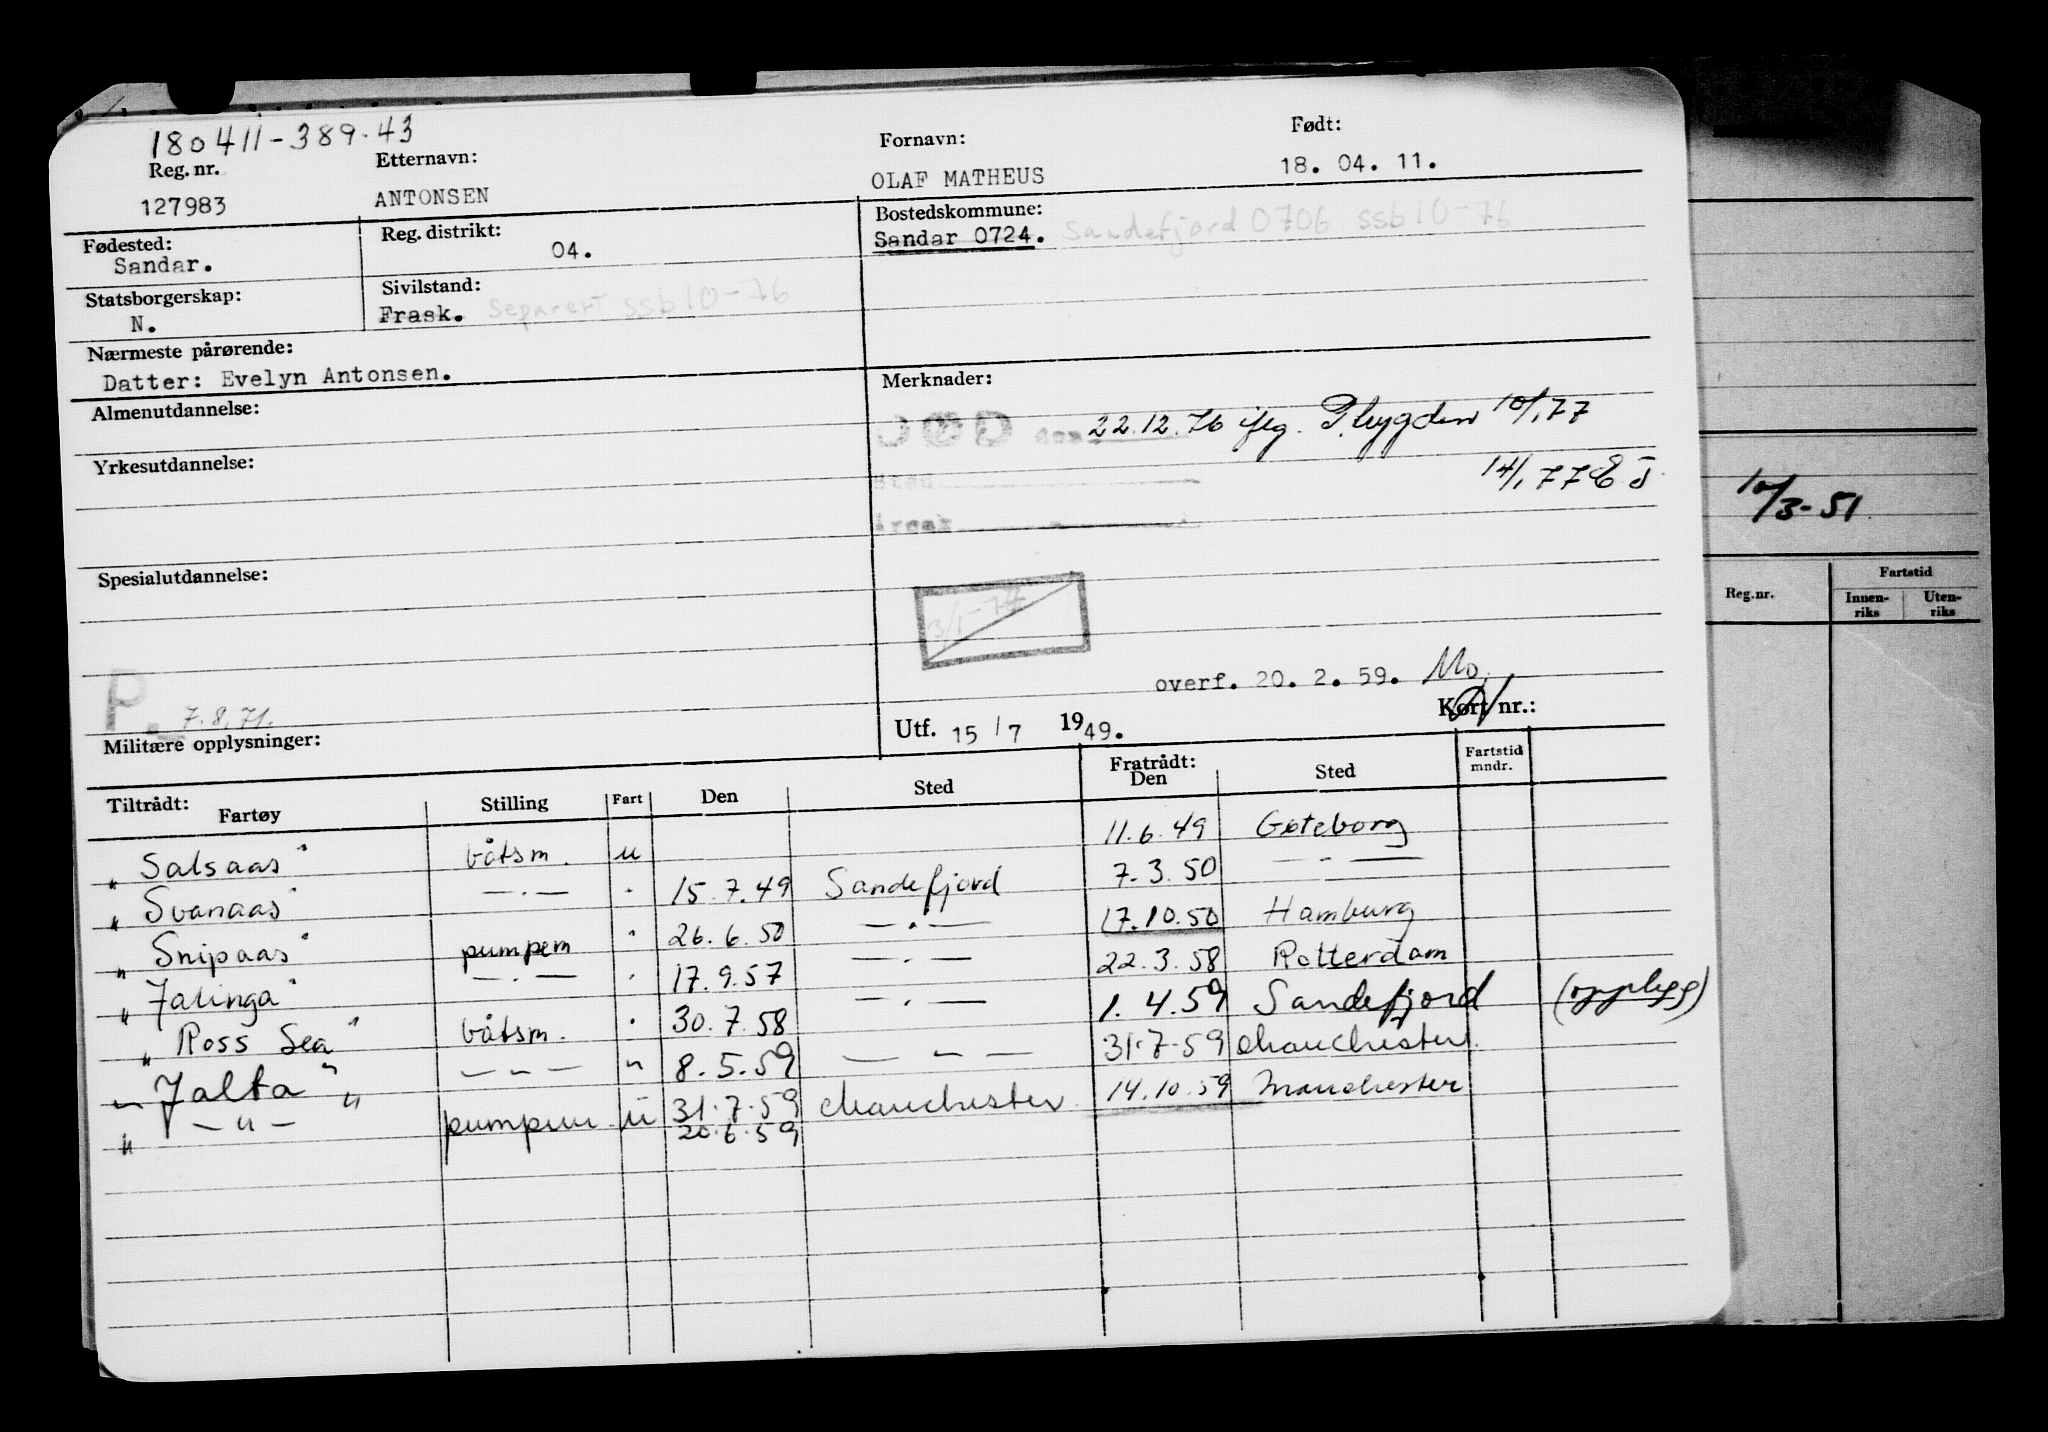 180411-389.43
Reg. nr. Etternavn: Fornavn: Født:
127983 ANTONSEN OLAF MATHEUS 18. 04. 11.
Fødested: Reg. distrikt: Bostedskommune:
Sandar. 04. Sandar 0724. Sandefjord 0706 ssb 10-76
Statsborgerskap: Sivilstand:
N. Frask. separert ssb 10-76
Nærmeste pårørende:
Datter: Evelyn Antonsen.
Almenutdannelse: Merknader:
DØD 22.12.76 iflg. 10/1.77
Yrkesutdannelse:
Sted 14/1.77
Årsak
10/3-51
Spesialutdannelse:
3/1-74
Fartstid
Reg.nr. Innen-riks Uten-riks
overf. 20. 2. 59. Mo.
P. 7.8.71.
Militære opplysninger: Utf. 15/7 1949. Kort nr.:
Tiltrådt: Fratrådt:
Fartøy Stilling Fart Den Sted Den Sted Fartstid mndr.
" Salsaas" båtsm. u 11.6.49 Gøteborg
" Svanaas" —.— " 15.7.49 Sandefjord 7.3.50 —"—
" Snipaas" pumpem " 26.6.50 —.— 17.10.50 Hamburg
" Jalinga" —.— " 17.9.57 —.— 22.3.58 Rotterdam
" Ross Sea" båtsm. " 30.7.58 —.— 1.4.59 Sandefjord (opplegg)
" Jalta" — " — " 8.5.59 — " — 31.7.59 Manchester
" — " — " pumpem. u 31.7.59 Manchester 14.10.59 Manchester
20.6.59